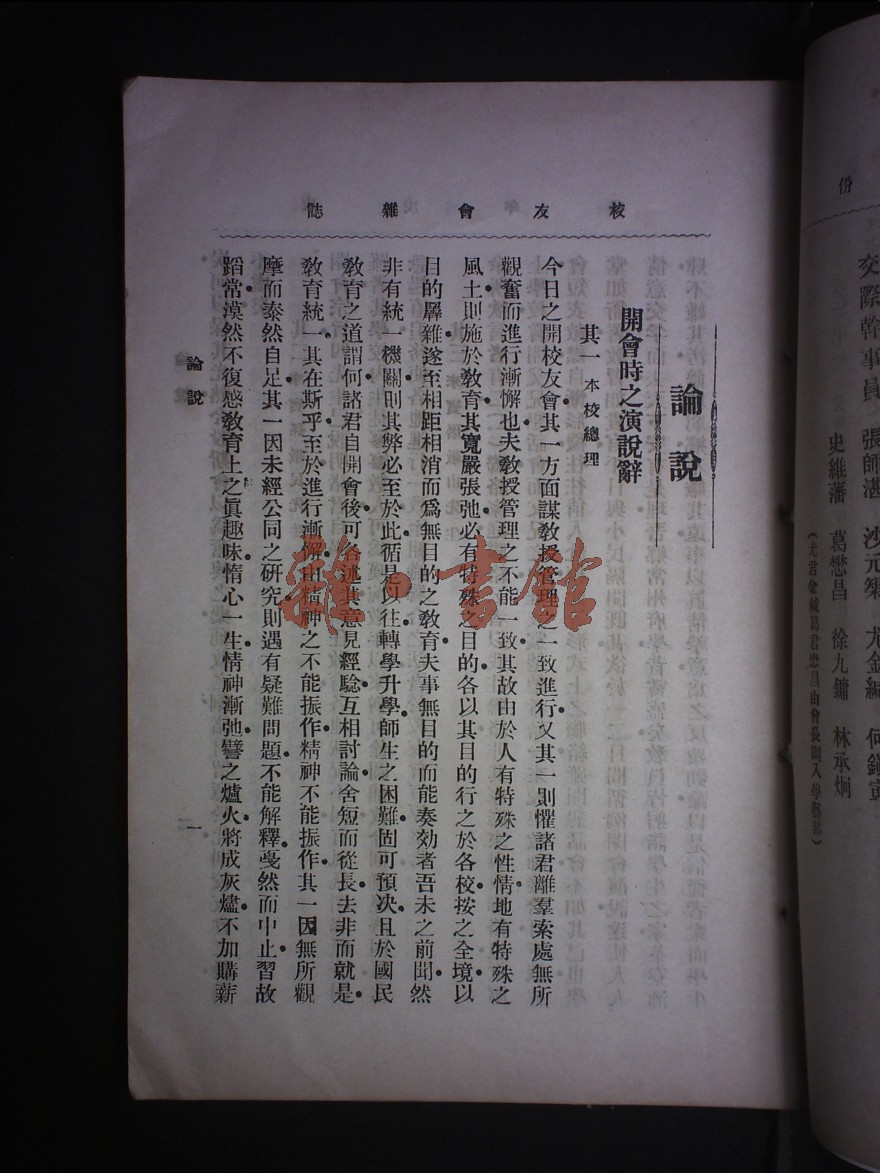 校友會雜誌
論說
開會時之演說辭
其一 本校總理
今日之開校友會其一方面謀教授管理之一致進行又其一則懼諸君離羣索處無所
觀奮而進行漸懈也夫教授管理之不能一致其故由於人有特殊之性情地有特殊之
風土則施於敎育其寬嚴張弛必有特殊之目的各以其目的行之於各校按之全境以
目的厖雜遂至相距相消而爲無目的之敎育夫事無目的而能奏効者吾未之前聞然
非有統一機關則其弊必至於此循是以往轉學升學師生之困難固可預决且於國民
敎育之道謂何諸君自開會後可各述其意見經騐互相討論舍短而從長去非而就是
敎育統一其在斯乎至於進行漸懈由精神之不能振作精神不能振作其一因無所觀
摩而泰然自足其一因未經公同之研究則遇有疑難問題不能解釋戞然而中止習故
蹈常漠然不復感敎育上之眞趣味惰心一生情神漸弛譬之爐火將成灰燼不加購薪
論說
一
份
交際幹事員 張師湛 沙元榘 尤金緘 何鎭寅
史維藩 葛懋昌 徐九鏞 林承炯
(尤君金緘葛君懋昌由會長調入學藝部)
雜·書館